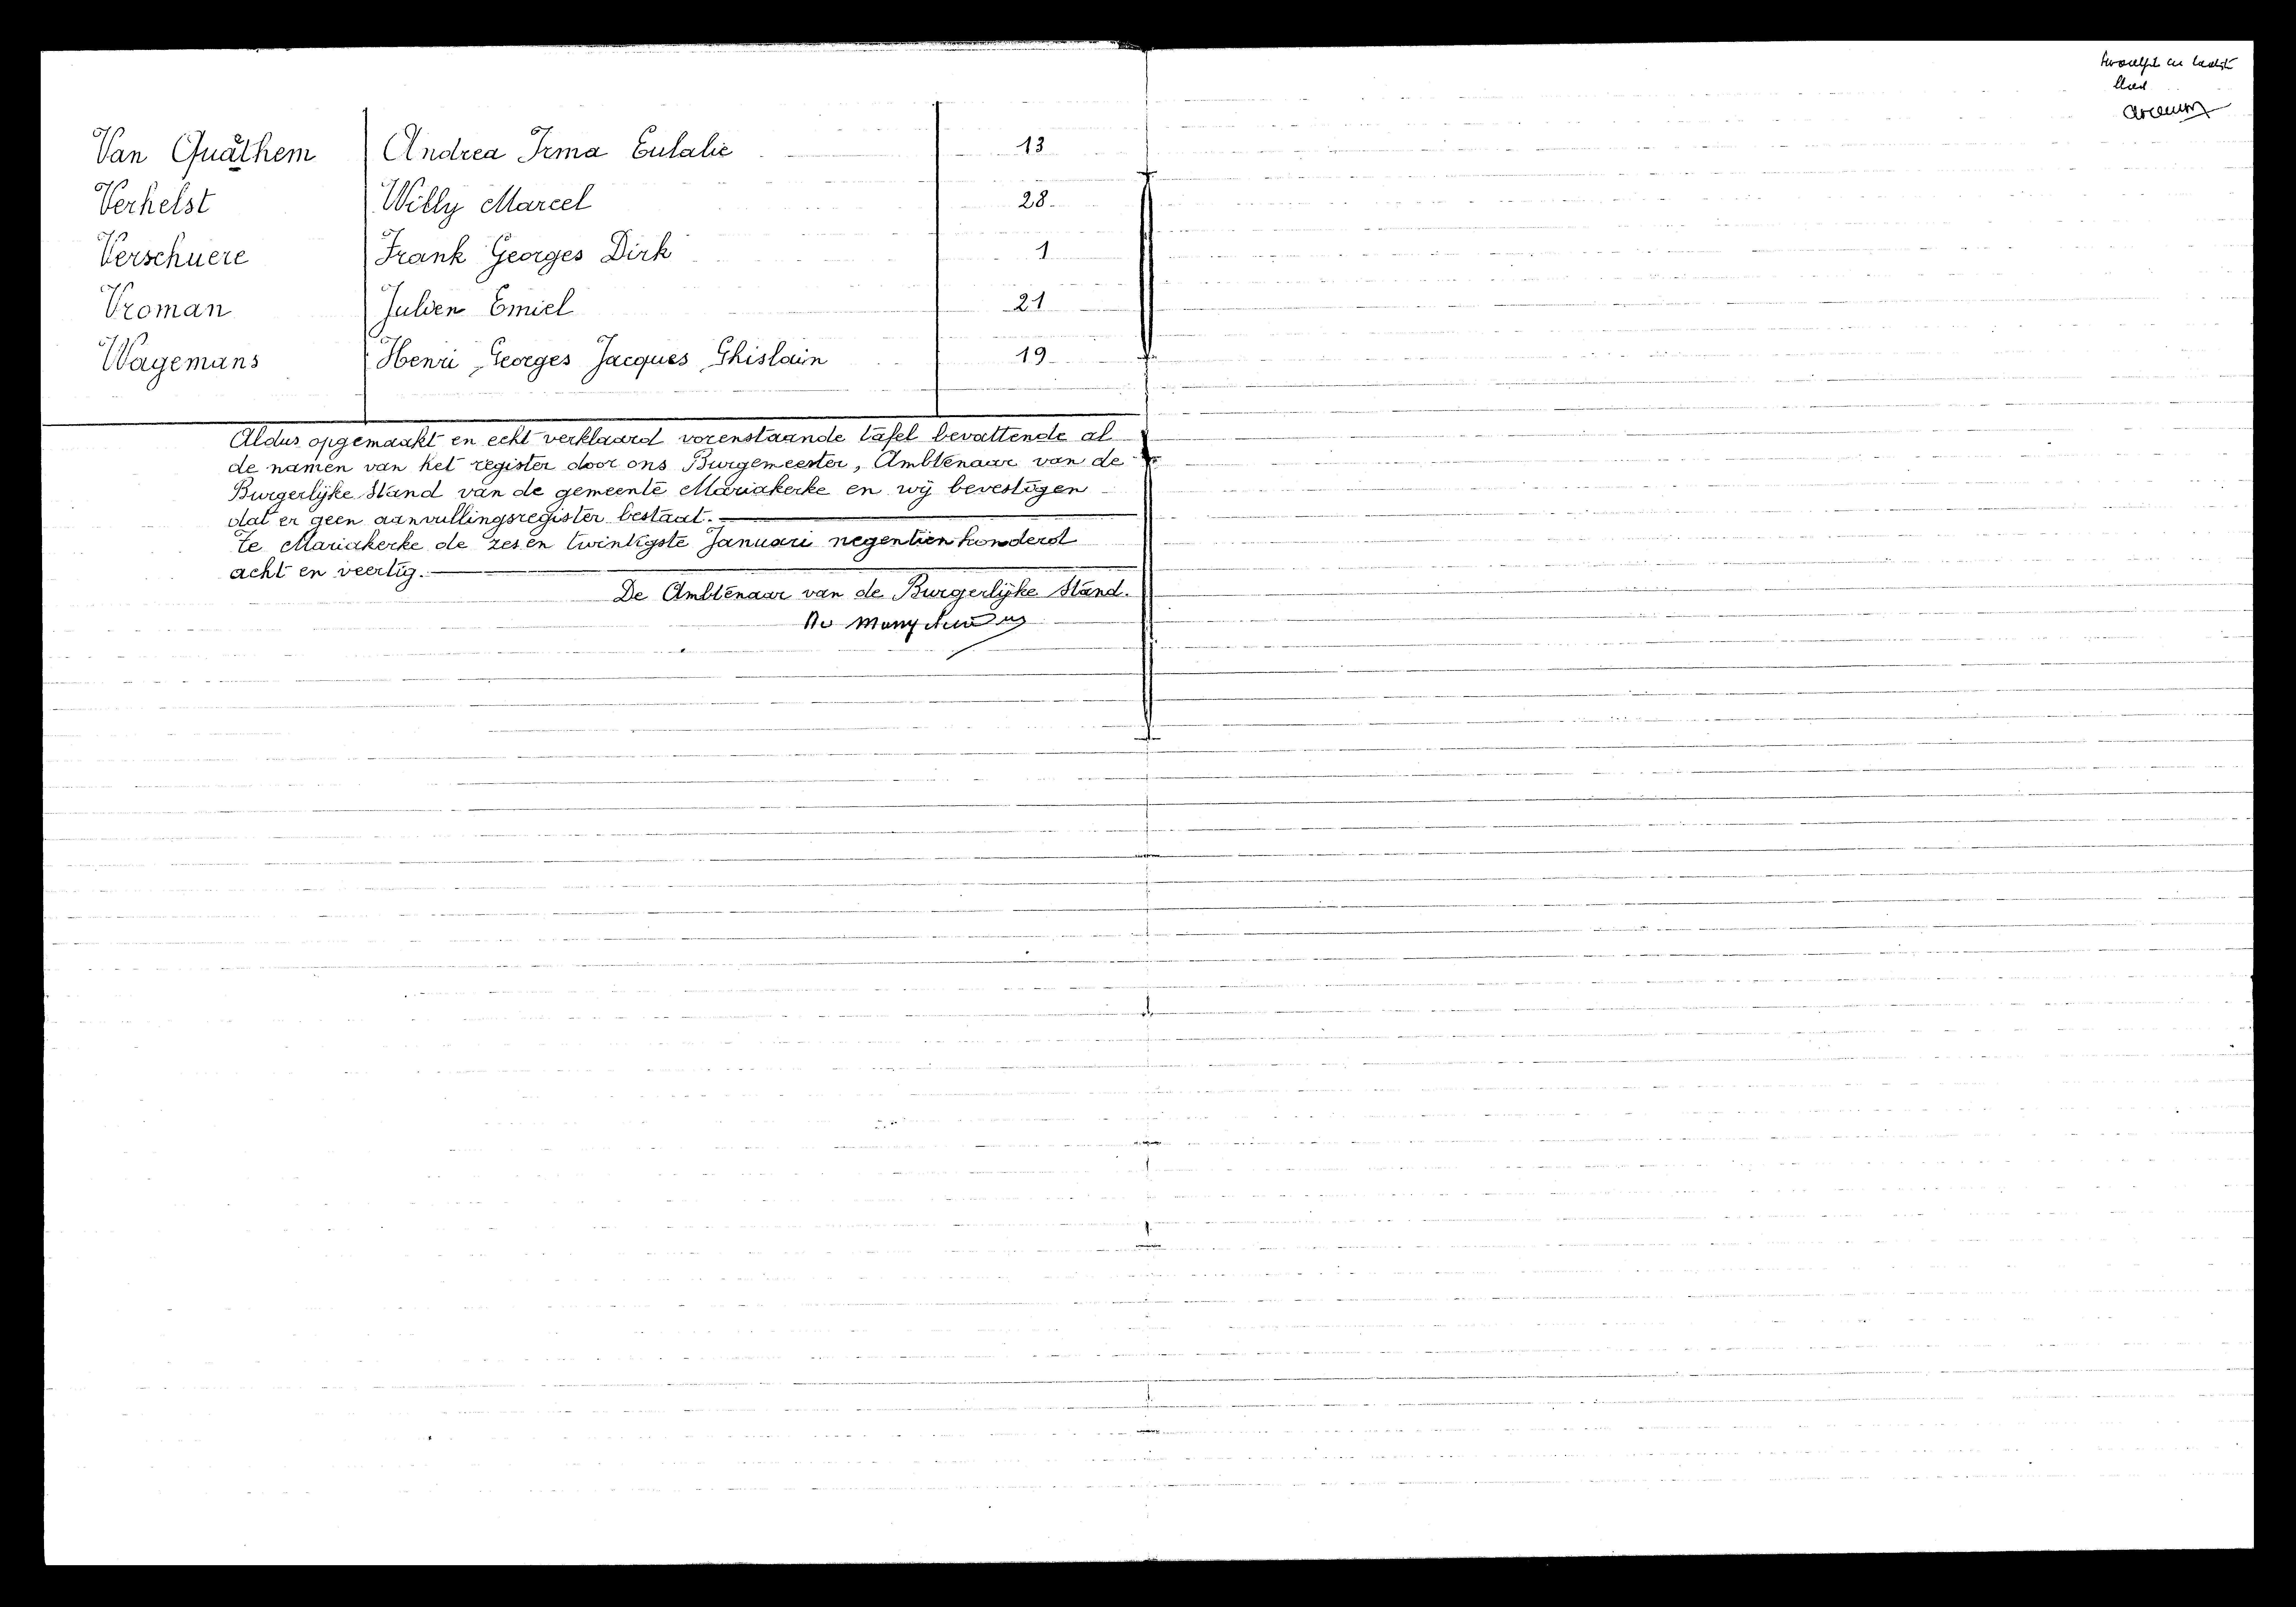 Van Quathem Andrea Irma Eulalie 13
Verhelst Willy Marcel 28
Verschuere Frank Georges Dirk 1
Vroman Julien Emiel 21
Wagemans Henri, Georges Jacques, Ghislain 19
Aldus opgemaakt en echt verklaard vorenstaande tafel bevattende al
de namen van het register door ons Burgemeester, Ambtenaar van de
Burgerlijke Stand van de gemeente Mariakerke en wij bevestigen
dat er geen aanvullingsregister bestaat.
Te Mariakerke de zes en twintigste Januari negentien honderd
acht en veertig.
De Ambtenaar van de Burgerlijke Stand.
twaalfde en laatste
blad